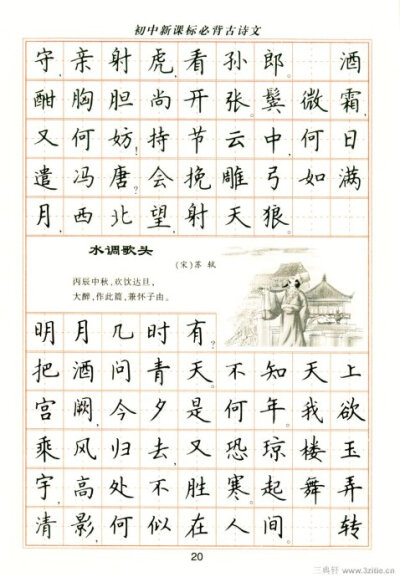 初中新课标必背古诗文
守,亲射虎,看孙郎。 酒
酣胸胆尚开张。鬓微霜,
又何妨!持节云中,何日
遣冯唐?会挽雕弓如满
月,西北望,射天狼。
水调歌头
(宋)苏轼
丙辰中秋,欢饮达旦,
大醉,作此篇,兼怀子由。
明月几时有?
把酒问青天。不知天上
宫阙,今夕是何年。我欲
乘风归去,又恐琼楼玉
宇,高处不胜寒。起舞弄
清影,何似在人间。 转
20
三典轩 www.3zitie.cn